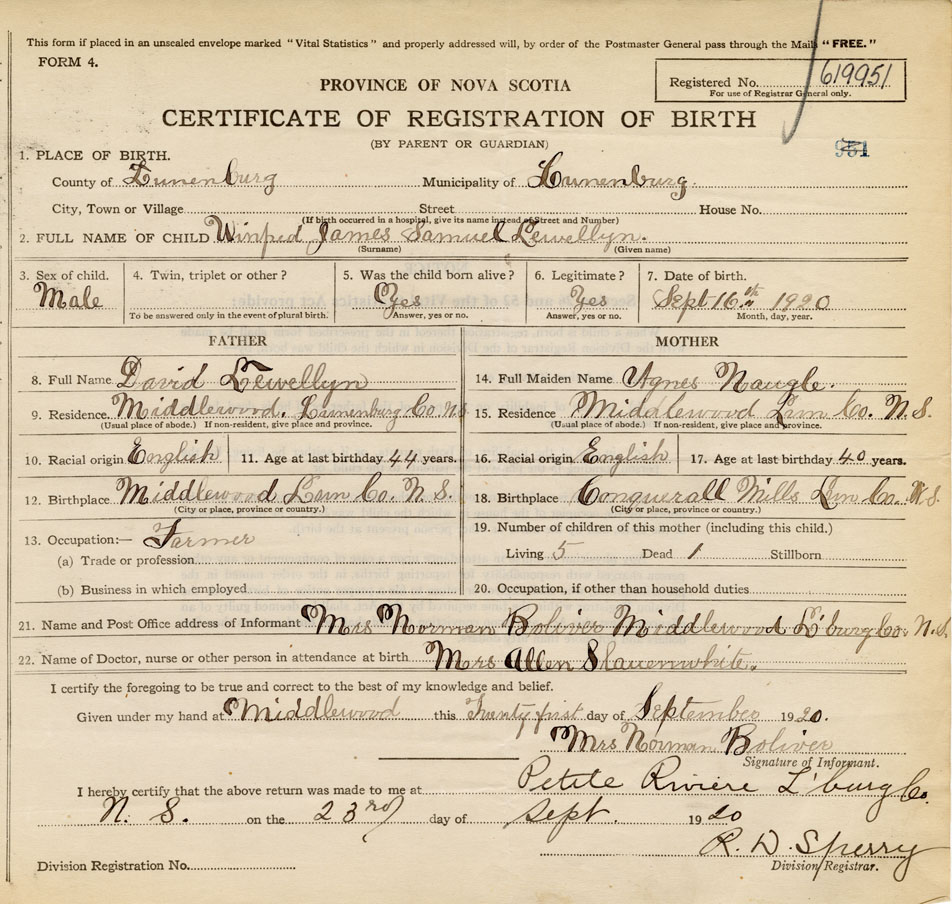 This form if placed in an unsealed envelope marked "Vital Statistics" and properly addressed will, by order of the Postmaster General pass through the Mails "FREE."
FORM 4.
Registered No. 619951
For use of Registrar General only.
PROVINCE OF NOVA SCOTIA
CERTIFICATE OF REGISTRATION OF BIRTH
(BY PARENT OR GUARDIAN)
951
1. PLACE OF BIRTH.
County of Lunenburg Municipality of Lunenburg.
City, Town or Village Street House No.
(If birth occurred in a hospital, give its name instead of Street and Number)
2. FULL NAME OF CHILD Winfred James Samuel Lewellyn.
(Surname) (Given name)
3. Sex of child. 4. Twin, triplet or other? 5. Was the child born alive? 6. Legitimate? 7. Date of birth.
Male Yes Yes Sept 16th 1920
To be answered only in the event of plural birth. Answer, yes or no. Answer, yes or no. Month, day, year.
FATHER MOTHER
8. Full Name David Lewellyn 14. Full Maiden Name Agnes Naugle.
9. Residence. Middlewood. Lunenburg Co. N.S. 15. Residence Middlewood Lun Co. N.S.
(Usual place of abode.) If non-resident, give place and province. (Usual place of abode.) If non-resident, give place and province.
10. Racial origin English 11. Age at last birthday 44 years. 16. Racial origin English 17. Age at last birthday 40 years.
12. Birthplace Middlewood Lun Co. N.S. 18. Birthplace Conquerall Mills Lun Co. N.S
(City or place, province or country.) (City or place, province or country.)
13. Occupation:— Farmer 19. Number of children of this mother (including this child.)
(a) Trade or profession Living 5 Dead 1 Stillborn
(b) Business in which employed 20. Occupation, if other than household duties
21. Name and Post Office address of Informant Mrs Norman Boliver Middlewood L'burg Co. N.S.
22. Name of Doctor, nurse or other person in attendance at birth Mrs Allen Shauenwhite.
I certify the foregoing to be true and correct to the best of my knowledge and belief.
Given under my hand at Middlewood this Twenty first day of September 1920.
Mrs Norman Boliver
Signature of Informant.
I hereby certify that the above return was made to me at Petite Riviere L'burg Co.
N. S. on the 23rd day of Sept. 1920
R. D. Sperry
Division Registration No. Division Registrar.